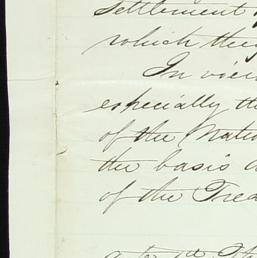 settlement
which they
In view
especially the
of the Nation
the basis
of the Trea